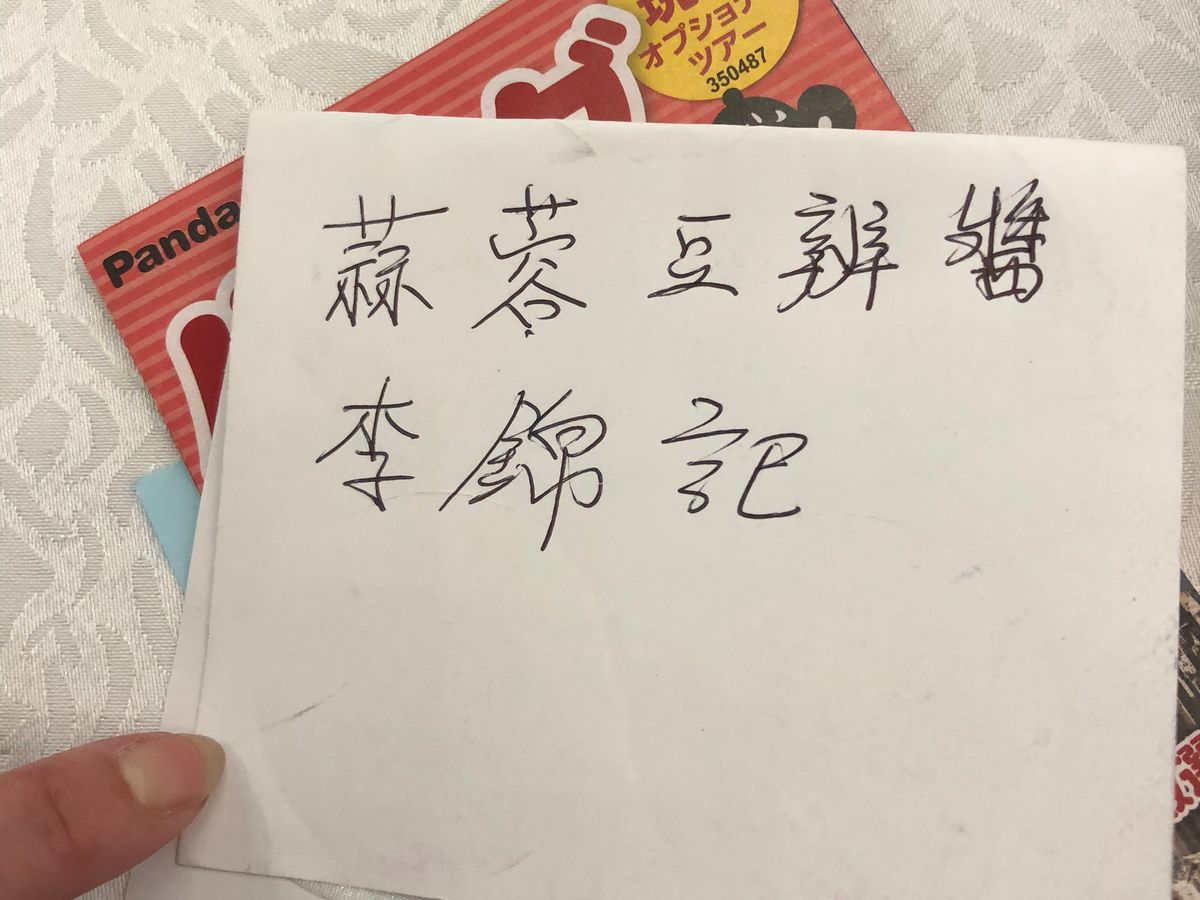 オプショナ
ツアー
350487
Panda
蒜蓉豆辦醬
李錦記